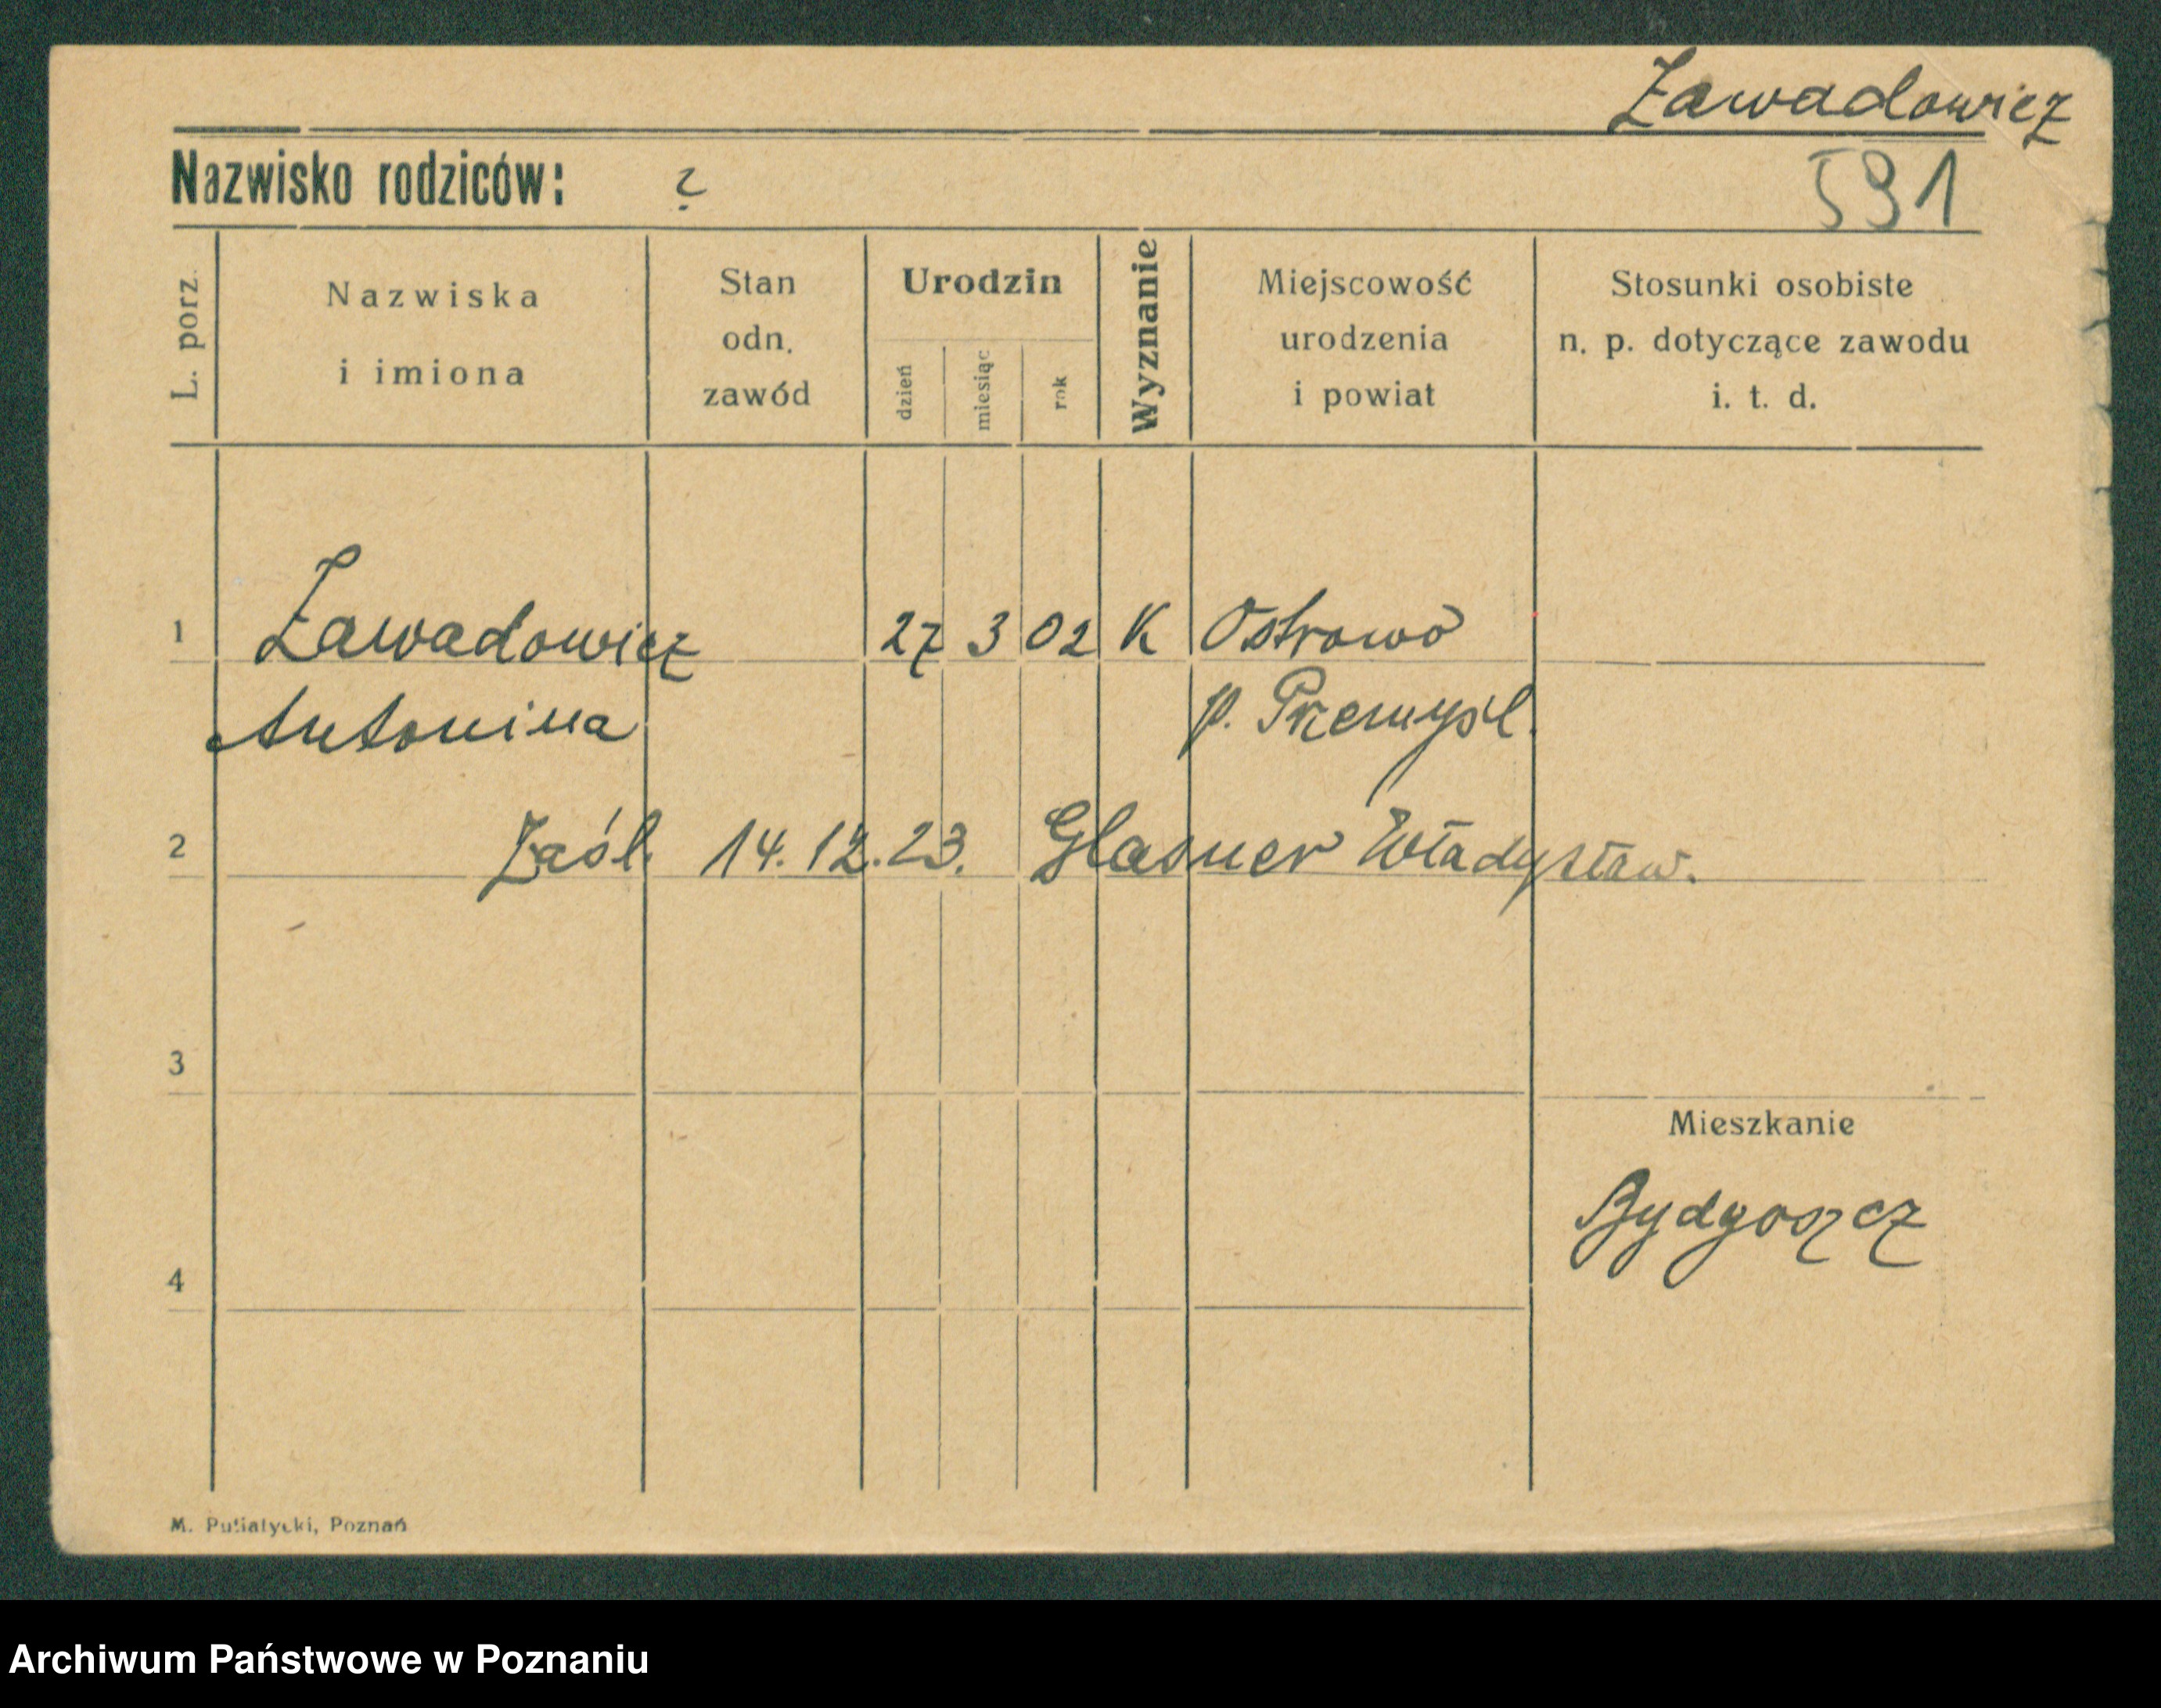 Zawadowicz
Nazwisko rodziców: ?
591
L. porz.
Nazwiska
i imiona
Stan
odn.
zawód
Urodzin
dzień
miesiąc
rok
Wyznanie
Miejscowość
urodzenia
i powiat
Stosunki osobiste
n. p. dotyczące zawodu
i. t. d.
1 Zawadowicz 27 3 02 K Ostrowo
Antonina p. Przemyśl.
2 Zaśl. 14.12.23. Glasner Władysław.
3
Mieszkanie
Bydgoszcz
4
M. Putiatycki, Poznań
Archiwum Państwowe w Poznaniu